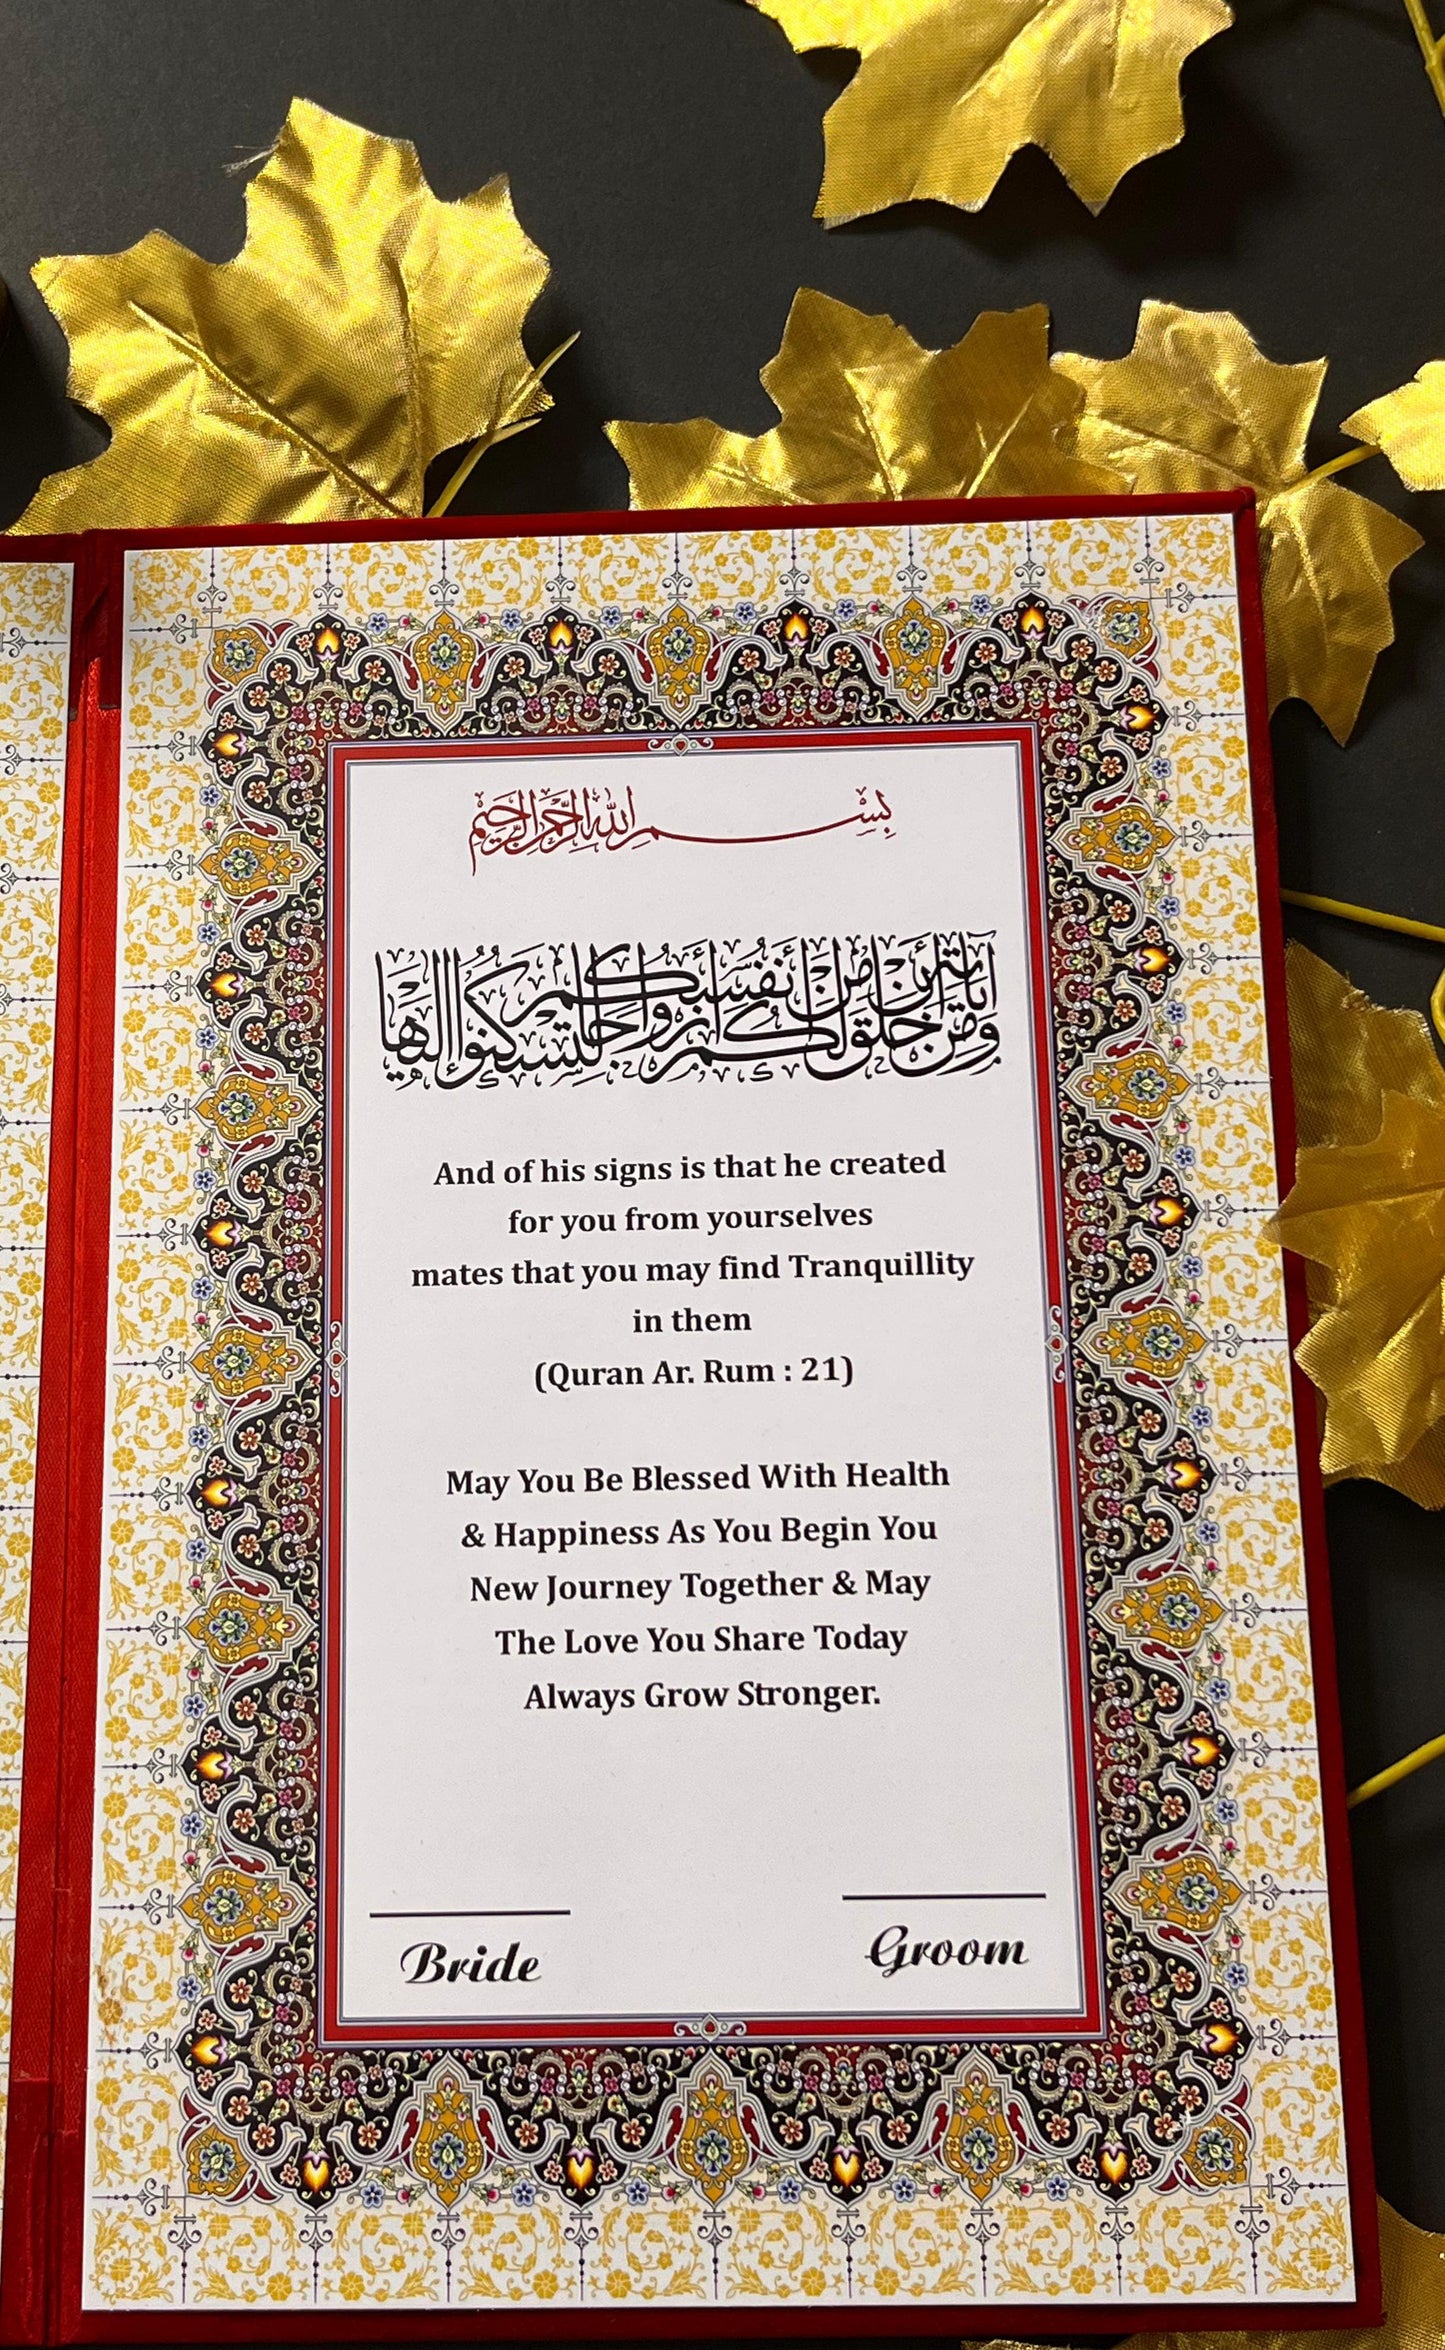 بِسْمِ اللهِ الرَّحْمٰنِ الرَّحِيْمِ
وَمِنْ آيَاتِهِ أَنْ خَلَقَ لَكُمْ مِنْ أَنْفُسِكُمْ أَزْوَاجًا لِتَسْكُنُوا إِلَيْهَا
And of his signs is that he created
for you from yourselves
mates that you may find Tranquillity
in them
(Quran Ar. Rum : 21)
May You Be Blessed With Health
& Happiness As You Begin You
New Journey Together & May
The Love You Share Today
Always Grow Stronger.
Bride
Groom